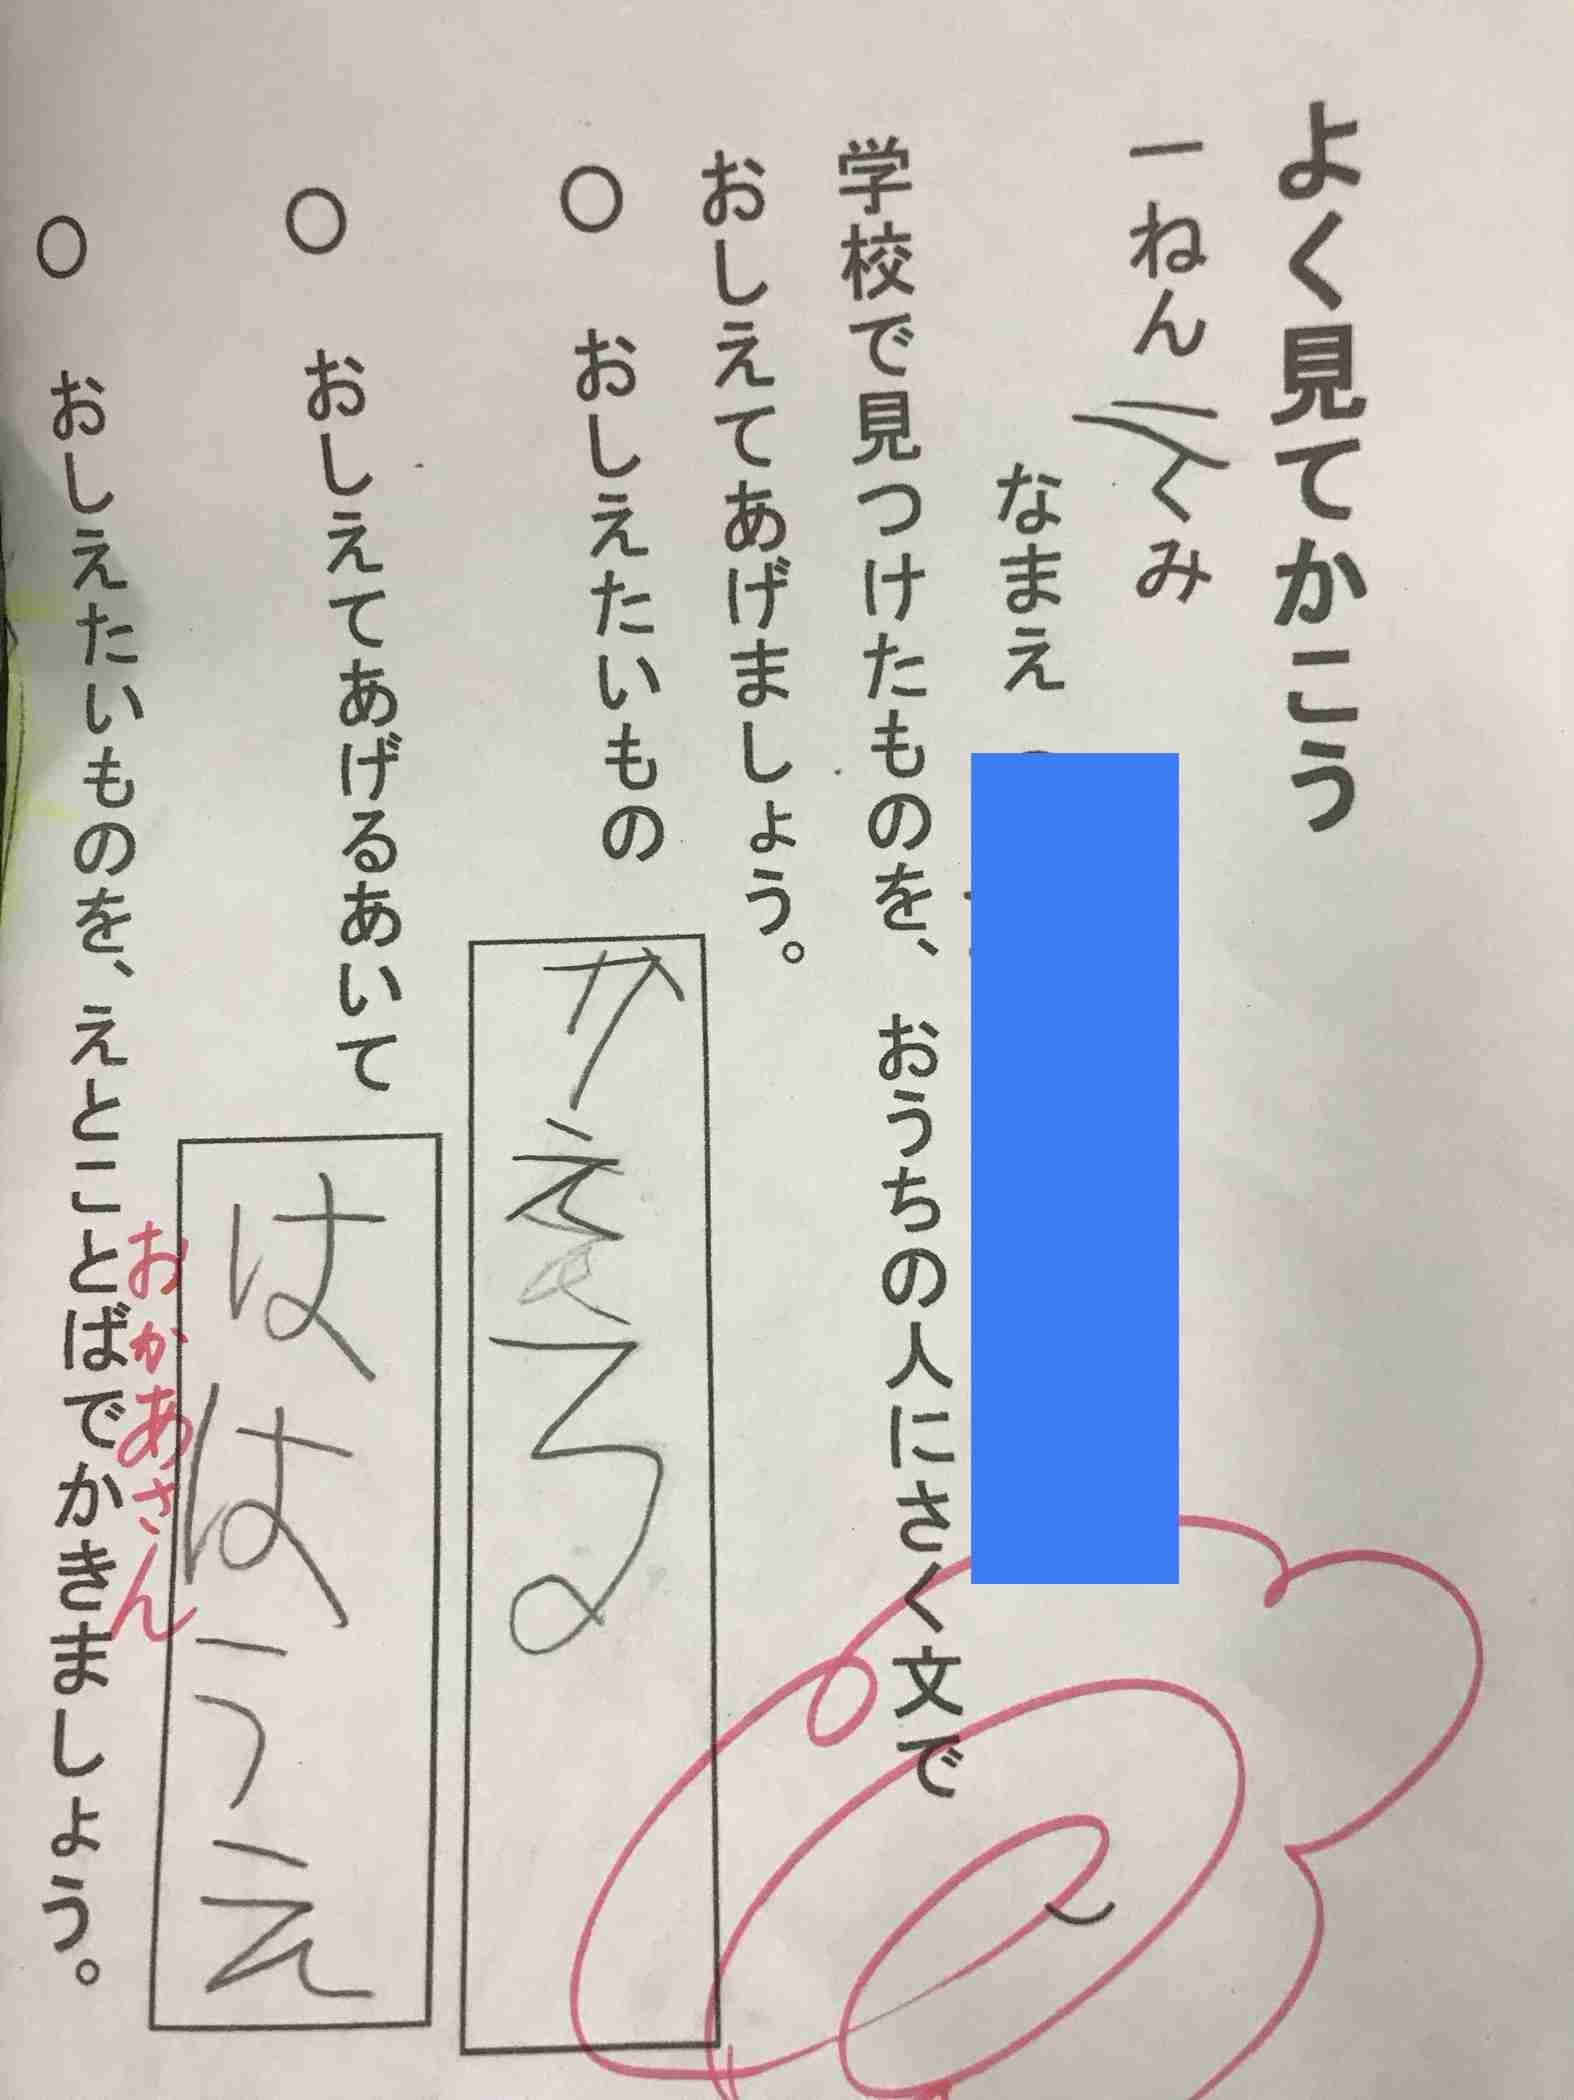 よく見てかこう
一ねん 二くみ
なまえ
学校で見つけたものを、おうちの人にさく文で
おしえてあげましょう。
○ おしえたいもの かえる
○ おしえてあげるあいて ははうえ
おかあさん
○ おしえたいものを、えとことばでかきましょう。